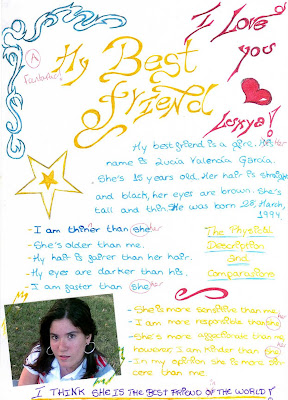 I Love
you
Lucya!
A
Fantastic!
My Best
friend
My best friend is a girl. Her
name is Lucia Valencia Garcia.
She's 15 years old. Her hair is straight
and black, her eyes are brown. She's
tall and thin. She was born 28, March,
1994.
- I am thinner than she her
- She's older than me.
- My hair is fairer than her hair.
- My eyes are darker than his.
- I am faster than she her
The Physical
Description
and
Comparations
- She's more sensitive than me.
- I am more responsible than she her
- She's more affectionate than me,
however, I am kinder than she her
- In my opinion she is more sin
cere than me.
I THINK SHE IS THE BEST FRIEND OF THE WORLD!